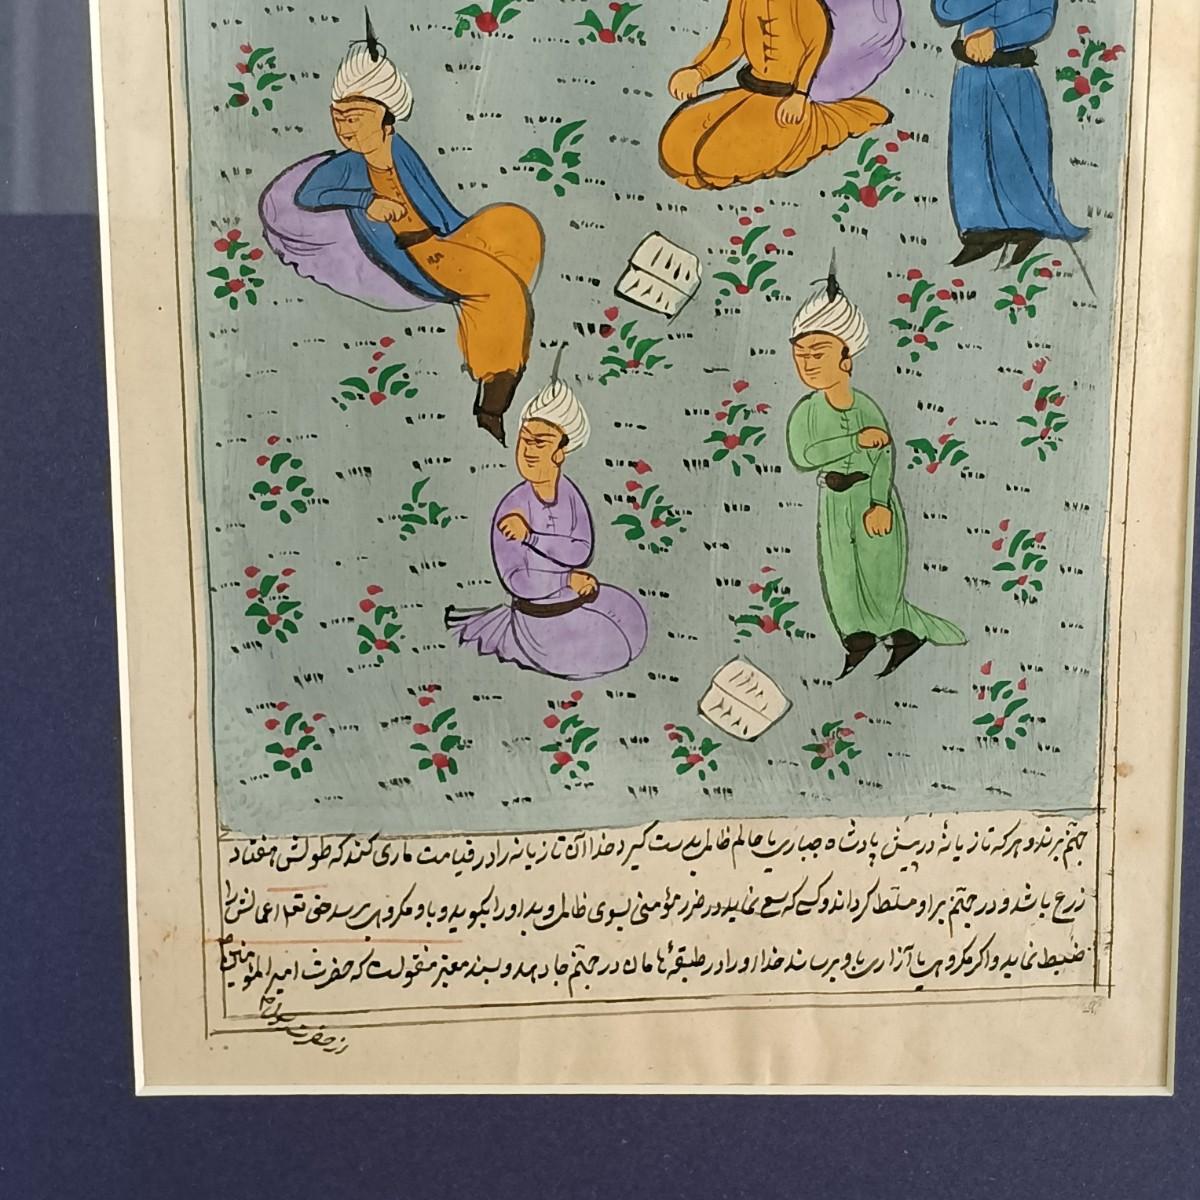 جهنم برند و هر که تازیانهٔ در پیش پادشاه جباری یا حاکم ظالم بدست گیرد خدا آن تازیانه را در قیامت ماری کند که طولش هفتاد
ذرع باشد و در جهنم بر او مسلط گرداند و کسی که سعی نماید در ضرر مؤمنی بسوی ظالمی و بد او را بگوید و باو مکروهی نرسد حق تعالی اعمالش را
ضبط نماید و اگر مکروهی یا آزاری باو برساند خدا او را در طبقهٔ هامان در جهنم جا دهد و بسند معتبر منقولست که حضرت امیر المؤمنین
از حضرت رسول